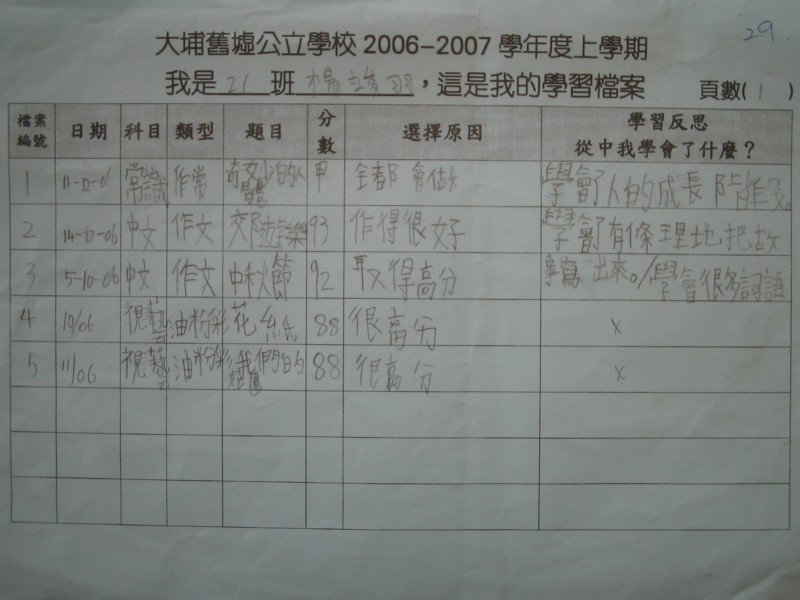 29
大埔舊墟公立學校 2006-2007 學年度上學期
我是 21 班 楊 羽，這是我的學習檔案 頁數( 1 )
檔案編號 日期 科目 類型 題目 分數 選擇原因 學習反思 從中我學會了什麼？
1 11-12-06 常識 奇妙的人體 甲 全都會做 學會了人的成長階段。
2 14-12-06 中文 作文 交 遊樂 93 作得很好 學會了有條理地把故
3 5-10-06 中文 作文 中秋節 92 取得高分 事寫出來。/學會很多詞語
4 10/06 視藝 油粉彩 花紙 88 很高分 x
5 11/06 視藝 油粉彩 我們的 88 很高分 x